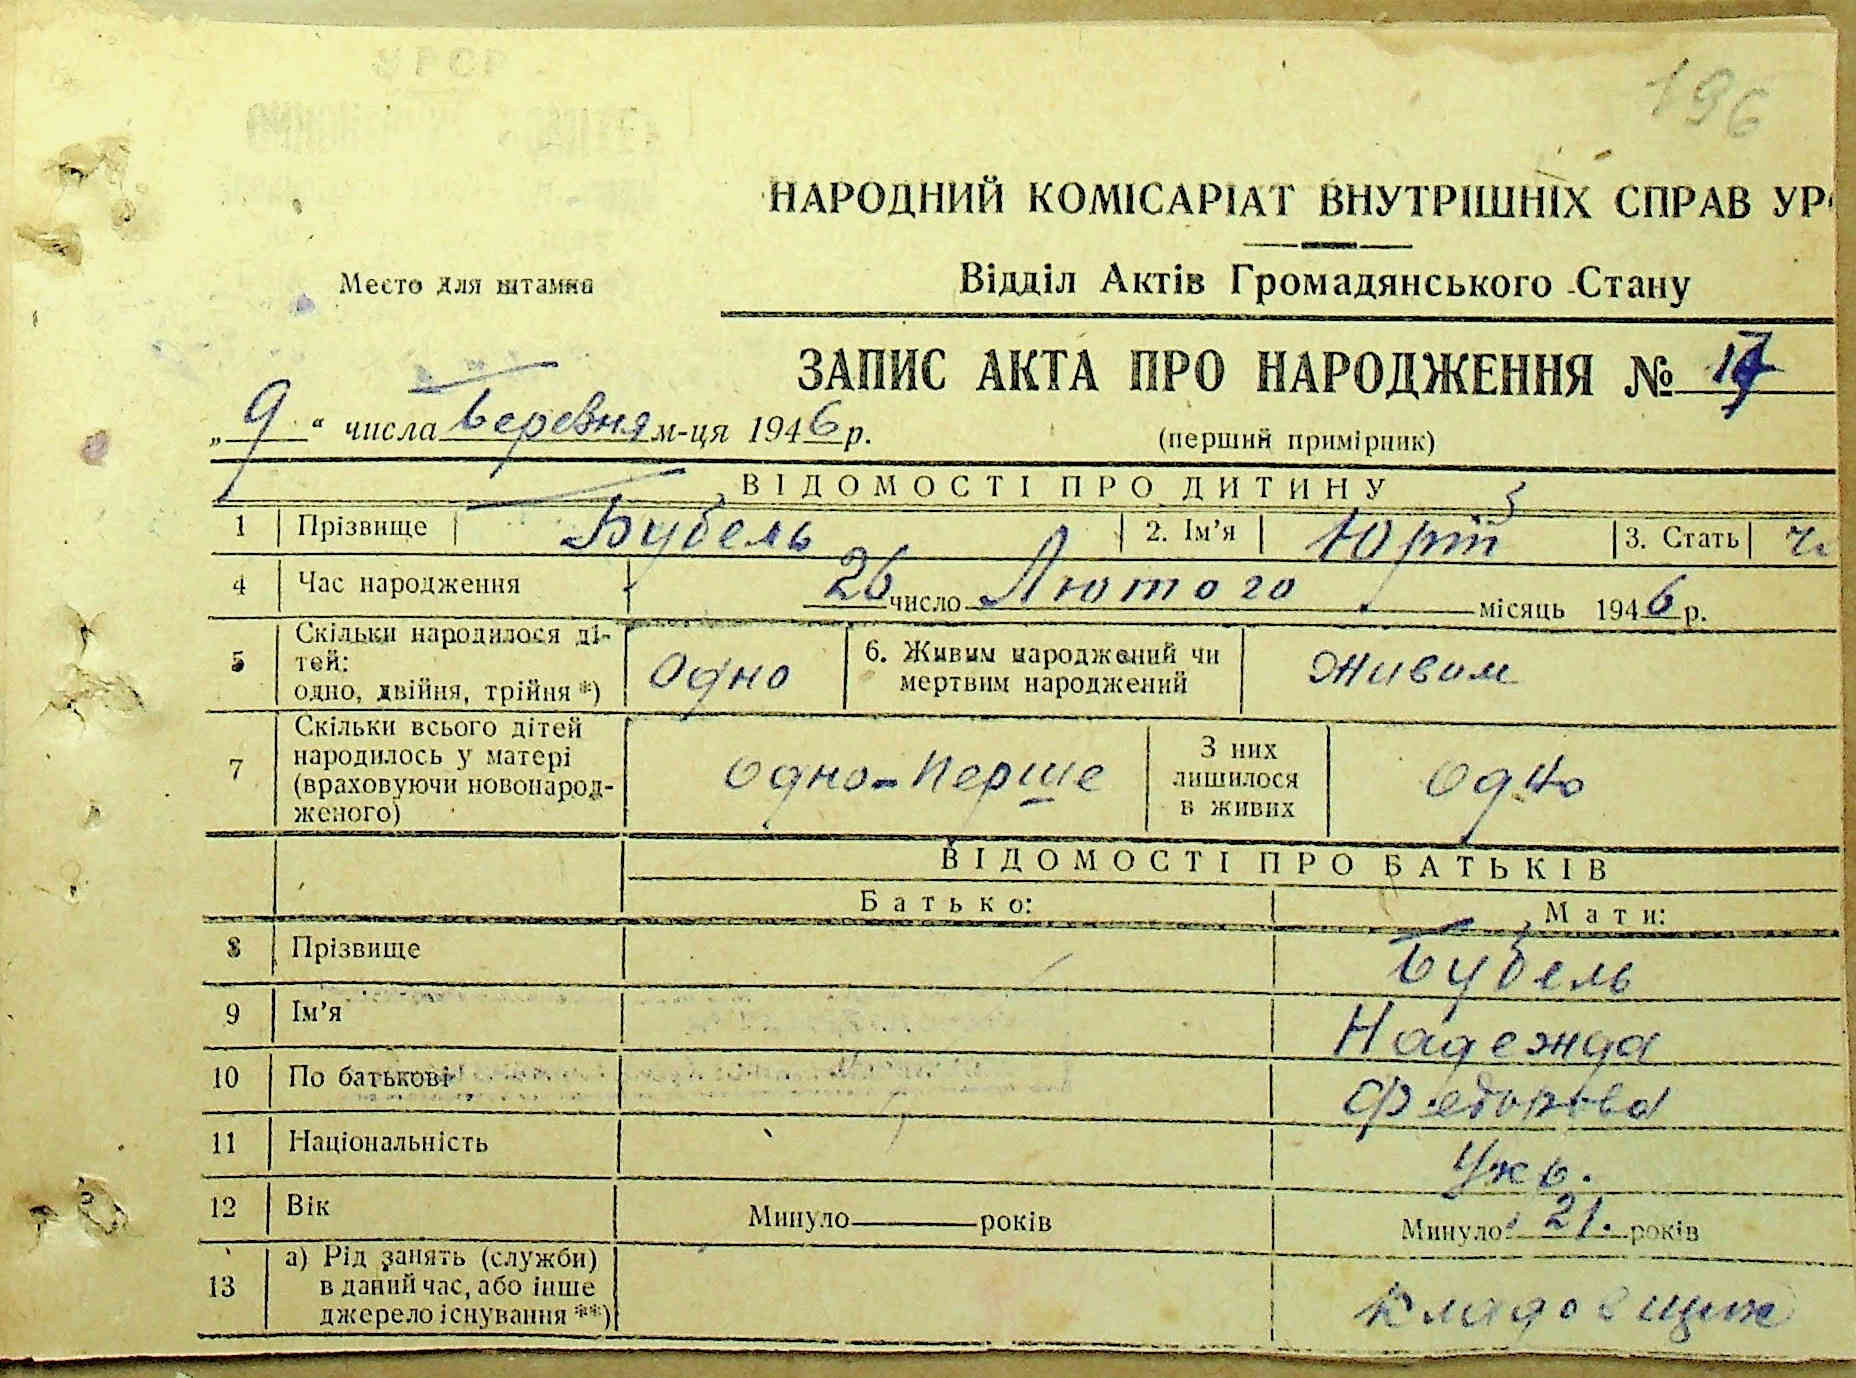 196
НАРОДНИЙ КОМІСАРІАТ ВНУТРІШНІХ СПРАВ УР
Место для штампа
Відділ Актів Громадянського Стану
ЗАПИС АКТА ПРО НАРОДЖЕННЯ № 17
„9“ числа березня м-ця 1946 р.
(перший примірник)
ВІДОМОСТІ ПРО ДИТИНУ
1 Прізвище Бубель 2. Ім’я Юрій 3. Стать ч.
4 Час народження 26 число Лютого місяць 1946 р.
5 Скільки народилося ді-
тей:
одно, двійня, трійня *) одно 6. Живим народжений чи
мертвим народжений живим
7 Скільки всього дітей
народилось у матері
(враховуючи новонарод-
женого) одно-перше З них
лишилося
в живих одно
ВІДОМОСТІ ПРО БАТЬКІВ
Батько: Мати:
8 Прізвище Бубель
9 Ім’я Надежда
10 По батькові Федорова
11 Національність Укр.
12 Вік Минуло років Минуло 21. років
13 а) Рід занять (служби)
в даний час, або інше
джерело існування **) Кладовщик